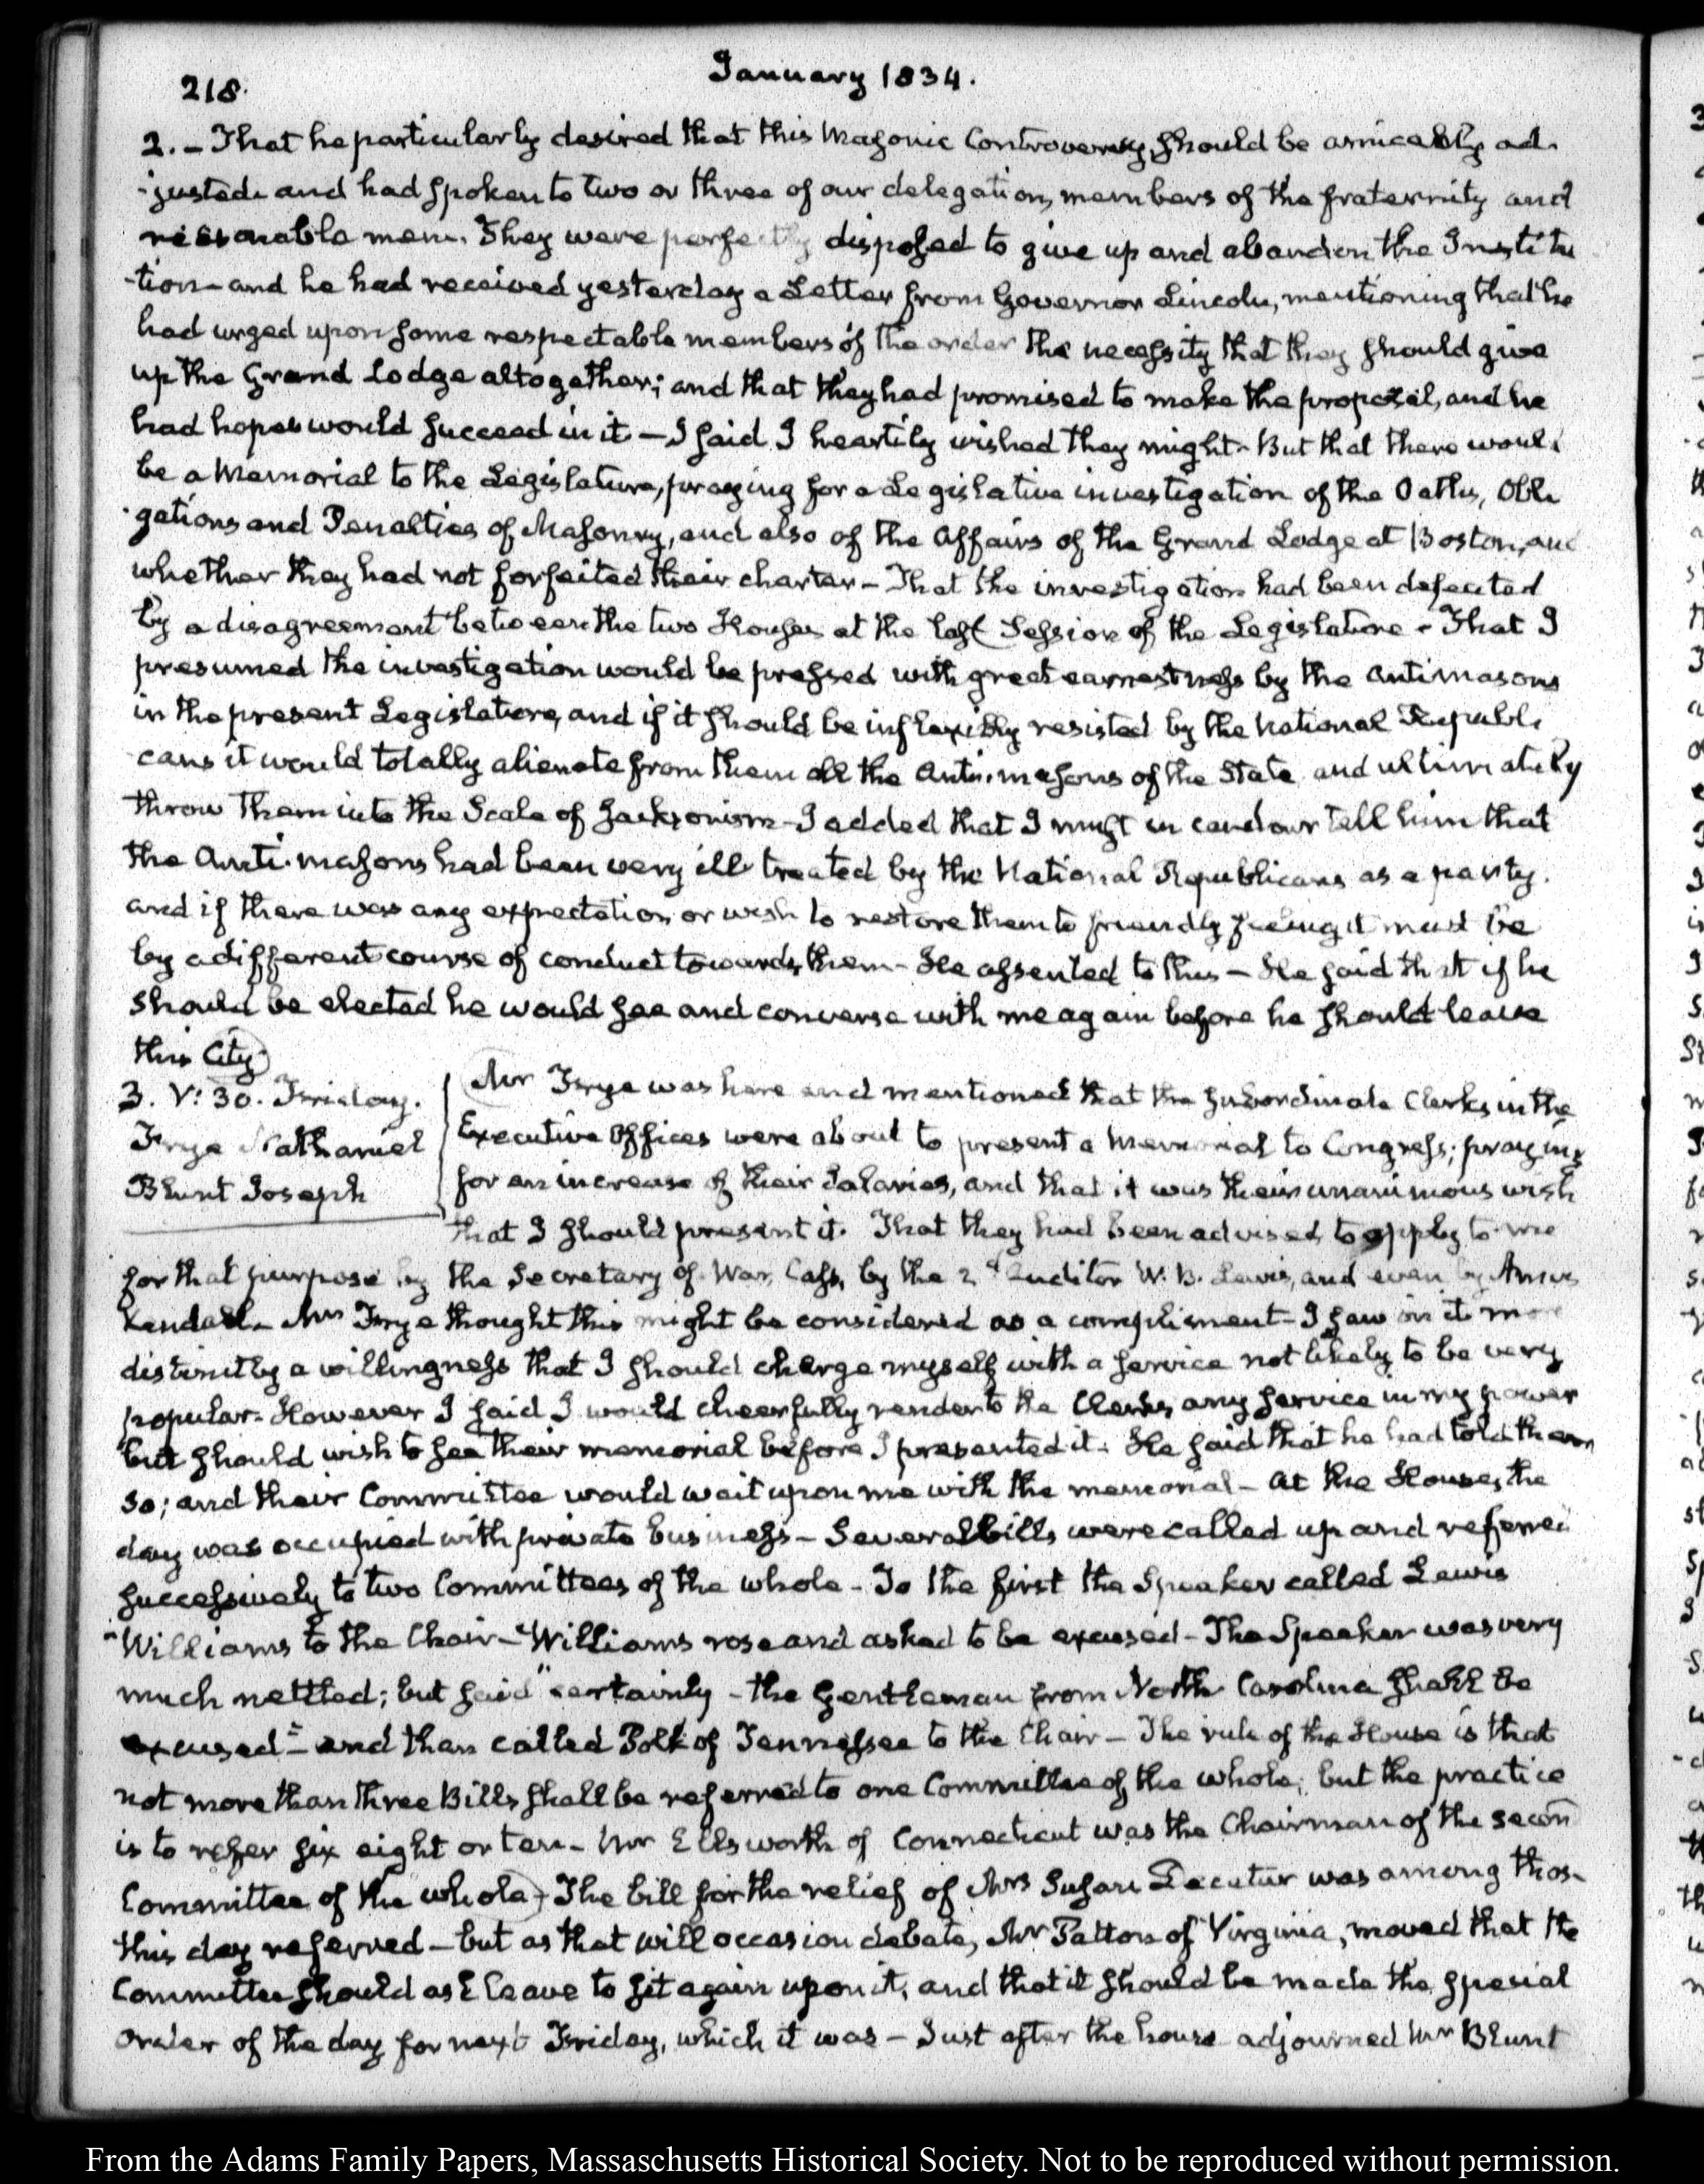 218.
January 1834.
2. – That he particularly desired that this Masonic Controversy, should be amicably ad-
-justed and had spoken to two or three of our delegation, members of the fraternity and
reasonable men. They were perfectly disposed to give up and abandon the Institu
-tion – and he had received yesterday a Letter from Governor Lincoln, mentioning that he
had urged upon some respectable members of the order the necessity that they should give
up the Grand Lodge altogether; and that they had promised to make the proposal, and he
had hopes would succeed in it – I said I heartily wished they might – But that there would
be a Memorial to the Legislature, praying for a Legislative investigation of the Oaths, Obli
-gations and Penalties of Masonry, and also of the Affairs of the Grand Lodge at Boston, and
whether they had not forfeited their charter – That the investigation had been defeated
by a disagreement between the two Houses at the last Session of the Legislature – That I
presumed the investigation would be pressed with great earnestness by the Antimasons
in the present Legislature, and if it should be inflexibly resisted by the National Republi
-cans it would totally alienate from them all the Anti-masons of the State and ultimately
throw them into the Scale of Jacksonism – I added that I must in candour tell him that
the Anti-masons had been very ill treated by the National Republicans as a party.
and if there was any expectation or wish to restore them to friendly feeling it must be
by a different course of conduct towards them – He assented to this – He said that if he
should be elected he would see and converse with me again before he should leave
this City.
3. V: 30. Friday.
Frye Nathaniel
Blunt Joseph
Mr Frye was here and mentioned that the subordinate Clerks in the
Executive Offices were about to present a Memorial to Congress; praying
for an increase of their Salaries, and that it was their unanimous wish
that I should present it. That they had been advised to apply to me
for that purpose by the Secretary of War, Cass, by the 2d Auditor W. B. Lewis, and even by Amos
Kendall – Mr Frye thought this might be considered as a compliment – I saw in it more
distinctly a willingness that I should charge myself with a service not likely to be very
popular – However I said I would cheerfully render to the Clerks any service in my power
but should wish to see their memorial before I presented it. He said that he had told them
so; and their Committee would wait upon me with the memorial – At the House, the
day was occupied with private business – Several bills were called up and referred
successively to two Committees of the whole – To the first the Speaker called Lewis
Williams to the Chair – Williams rose and asked to be excused – The Speaker was very
much nettled; but said "certainly – the Gentleman from North Carolina shall be
excused" – and then called Polk of Tennessee to the Chair – The rule of the House is that
not more than three Bills shall be referred to one Committee of the whole; but the practice
is to refer six eight or ten – Mr Ellsworth of Connecticut was the Chairman of the second
Committee of the whole – The bill for the relief of Mrs Susan Decatur was among those
this day referred – but as that will occasion debate, Mr Patton of Virginia, moved that the
Committee should ask leave to sit again upon it, and that it should be made the special
order of the day for next Friday, which it was – Just after the house adjourned Mr Blunt
From the Adams Family Papers, Massachusetts Historical Society. Not to be reproduced without permission.